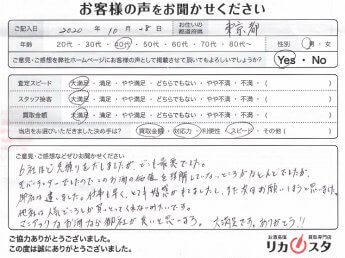 お客様の声をお聞かせください
ご記入日 2020年10月28日 お住いの都道府県 東京都
年齢 20代・30代・40代・50代・60代・70代・80代〜 性別 男・女
ご意見・ご感想を弊社ホームページにお客様の声として掲載させて頂いてもよろしいでしょうか? Yes・No
査定スピード 大満足・満足・やや満足・どちらでもない・やや不満・不満・( )
スタッフ接客 大満足・満足・やや満足・どちらでもない・やや不満・不満・( )
買取金額 大満足・満足・やや満足・どちらでもない・やや不満・不満・( )
当店をお選びいただきました決め手は? 買取金額・対応力・利便性・スピード・その他( )
ご意見・ご感想などぜひお聞かせください。
6社ほど見積りをだしましたが、ここが最高でした。
このお酒の価値を理解して
御社は違いました。仕事も早く、とても
他社は人気どころしか
マニアックなお酒なら御社が良いと思います。大満足です。ありがとう!!
ご協力ありがとうございました。
この度は誠にありがとうございました。
お酒高価買取専門店
リカスタ